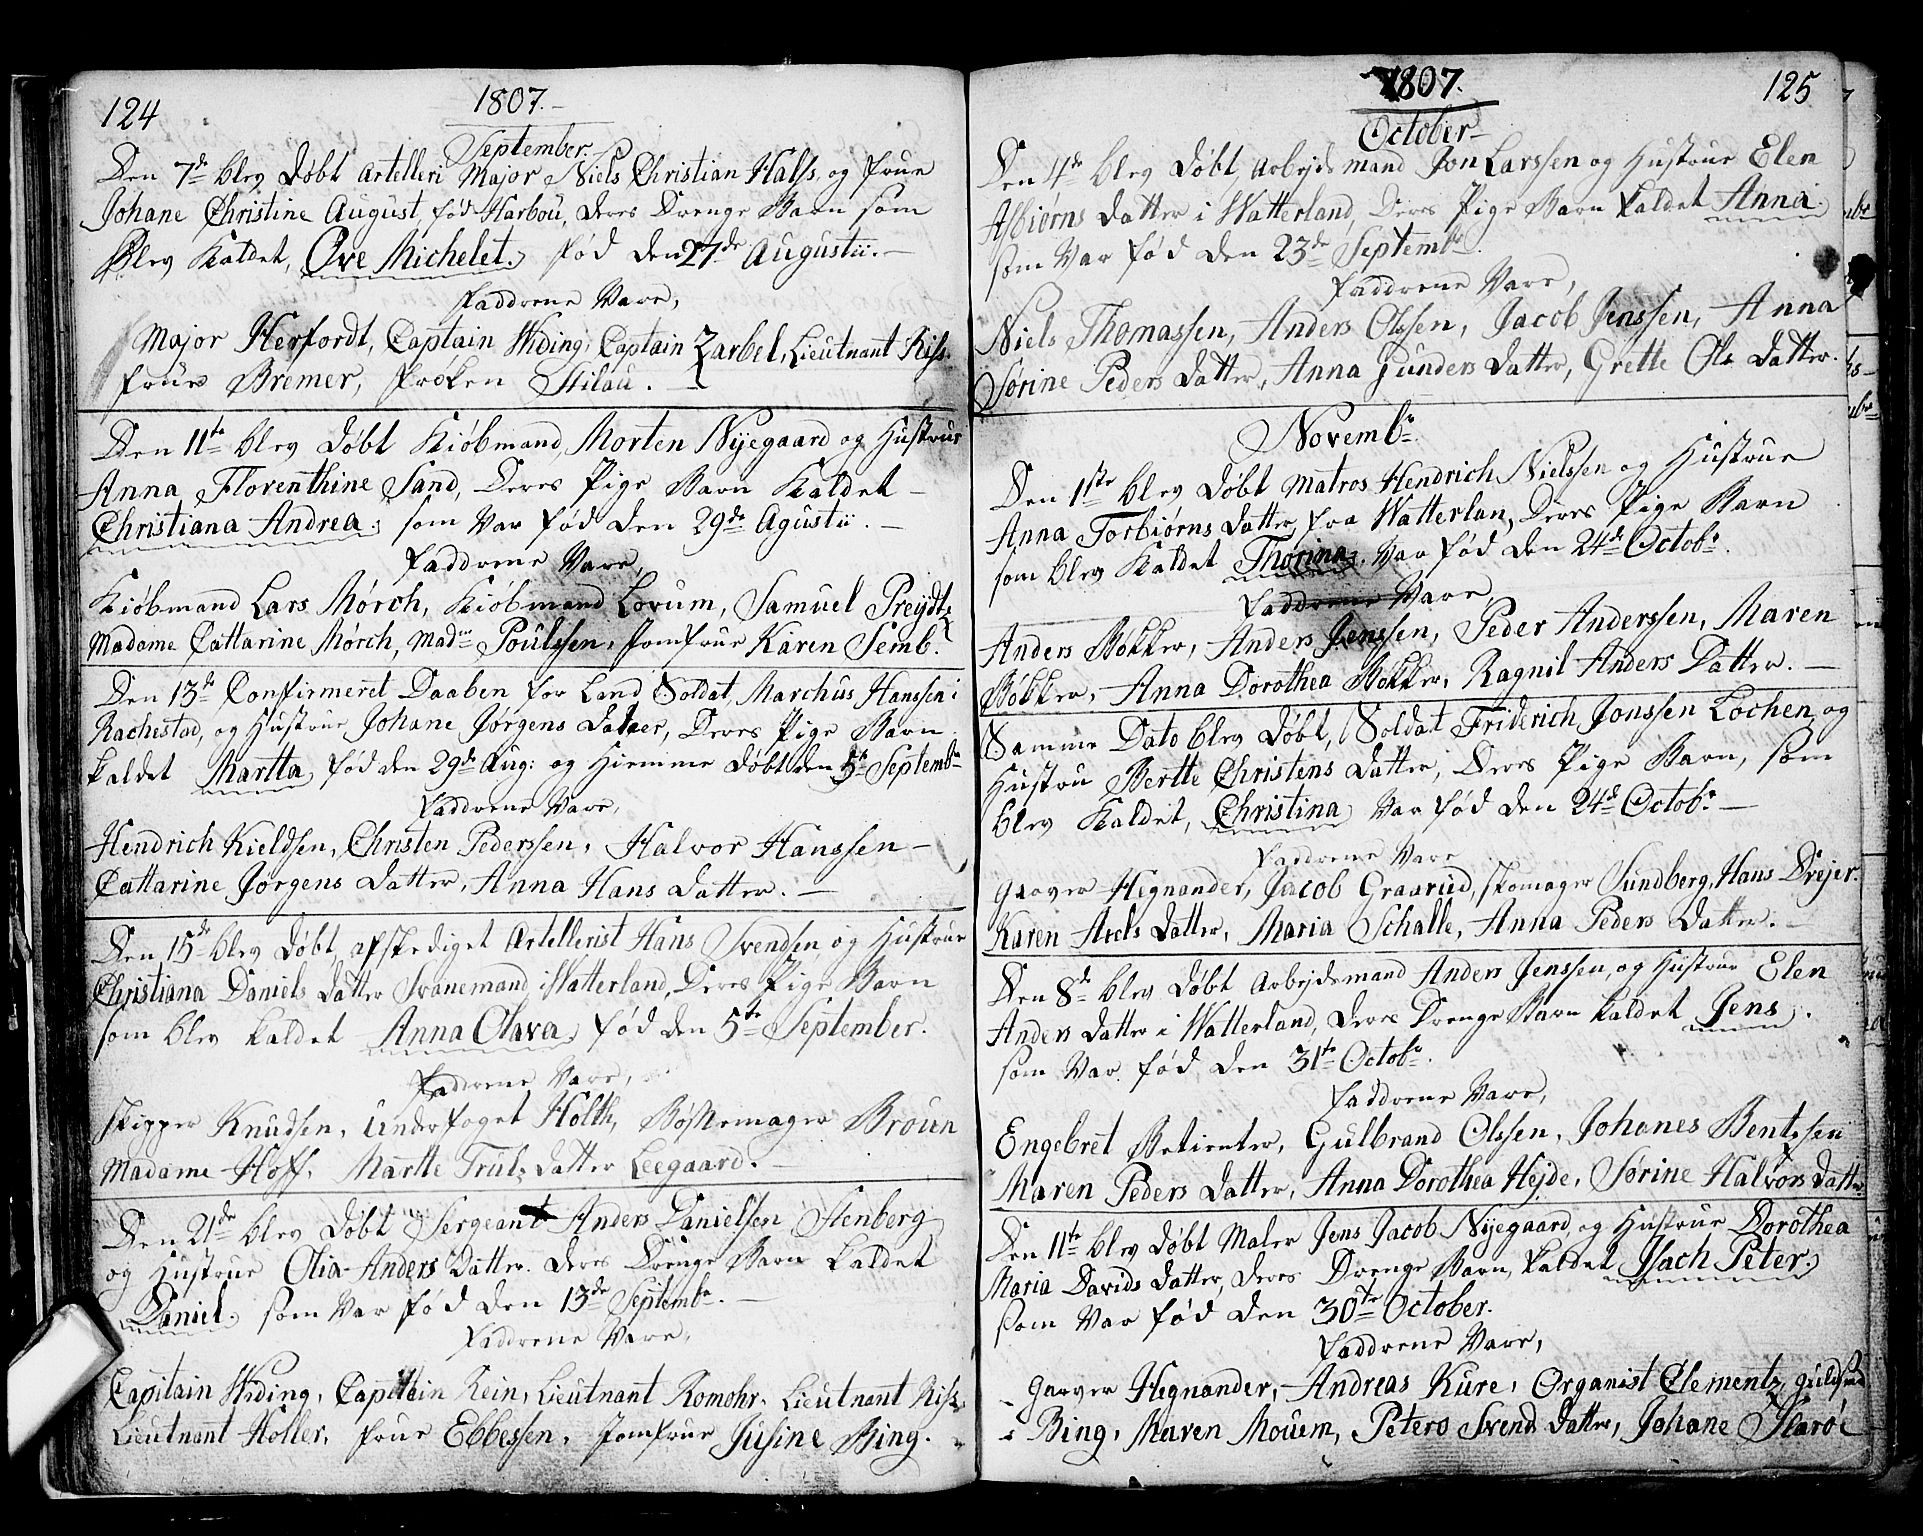 124
1807.
September
Den 7de blev Døbt Artelleri Major Niels Christian Halss og frue
Johane Christine August, fød Harbou, deres Drenge Barn som
Blev Kaldet, Ove Michelet. fød den 27de Augustii.
Faddrene Vare,
Major Herfordt, Captain Widing, Captain Zarbel, Lieutnant Riss.
frue Bremer, frøken Stilau.
Den 11te blev Døbt Kiøbmand Morten Nyegaard og Hustrue
Anna Florenthine Sand, Deres Pige Barn Kaldet
Christiana Andrea. som Var fød den 29de Agustii.
Faddrene Vare,
Kiøbmand Lars Mørch, Kiøbmand Lorum, Samuel Preydtz
Madame Cattarine Mørch, Madm Poulssen, Jomfrue Karen Semb.
Den 13de Confirmeret Daaben for Land Soldat, Marchus Hanssen i
Rachestad, og Hustrue Johane Jørgens datter, Deres Pige Barn
kaldet Martta, fød den 29de Aug: og Hiemme døbt den 5te Septembr
Faddrene Vare,
Hendrich Kieldsen, Christen Pederssen, Halvor Hanssen
Cattarine Jørgens datter, Anna Hans datter.
Den 15de blev Døbt, afskediget Artellerist Hans Svendsen, og Hustrue
Christiana Daniels datter Svanemand i Watterland, Deres Pige Barn
som blev kaldet Anna Olava, fød den 5te September.
Faddrene Vare,
Skipper Knudsen, Underfoget Holth, Bøssemager Broun
Madame Hoff, Martte Truls datter Leegaard.
Den 21de blev Døbt Sergeant Anders Danielsen Stenberg
og Hustrue Olia Anders datter. deres Drenge Barn kaldet
Daniel. som Var fød den 13de Septembr.
Faddrene Vare,
Capitain Widing, Capitain Rein, Lieutnant Romohr, Lieutnant Riss,
Lieutnant Høller, frue Ebbessen, Jomfrue Jusine Bing.
1807.
125
October
Den 4de blev Døbt, Arbejdsmand Jon Larssen og Hustrue Elen
Asbiørns datter i Watterland, Deres Pige Barn kaldet Anna.
som Var fød den 23de Septembr.
Faddrene Vare,
Niels Thomassen, Anders Olssen, Jacob Jenssen, Anna
Sørine Peders datter, Anna Gunders datter, Grette Ols datter.
Novembr.
Den 1ste blev Døbt Matros Hendrich Nielssen og Hustrue
Anna Torbiørns datter fra Watterlan, Deres Pige Barn
som blev Kaldet Thorina. Var fød den 24de Octobr.
Faddrene Vare,
Anders Bøkker, Anders Jenssen, Peder Anderssen, Maren
Bøkker, Anna Dorothea Bøkker, Ragnil Anders Datter.
Samme Dato blev Døbt, Soldat Friderich Jonssen Lochen og
Hustru Bertte Christens datter, Deres Pige Barn, som
blev Kaldet, Christina Var fød den 24de Octobr.
Faddrene Vare
Garver Hegnander, Jacob Graarud, Skomager Sundberg, Hans Drejer.
Karen Axels datter, Maria Schalle, Anna Peders datter.
Den 8de blev Døbt Arbejdsmand Anders Jenssen, og Hustrue Elen
Anders datter i Watterland, deres Drenge Barn kaldet Jens.
som Var fød den 31te Octobr.
Faddrene Vare,
Engebret Betienter, Gulbrand Olssen, Johanes Bentzsen
Maren Peders datter, Anna Dorothea Hejde, Sørine Halvors datter
Den 11te blev Døbt Maler Jens Jacob Nyegaard, og Hustrue Dorothea
Maria Davids datter, deres Drenge Barn, kaldet Isach Peter.
som Var fød den 30te October.
Faddrene Vare,
Garver Hegnander, Andreas Kure, Organist Clementz,
Bing, Maren Mouem, Petero Svends datter, Johane